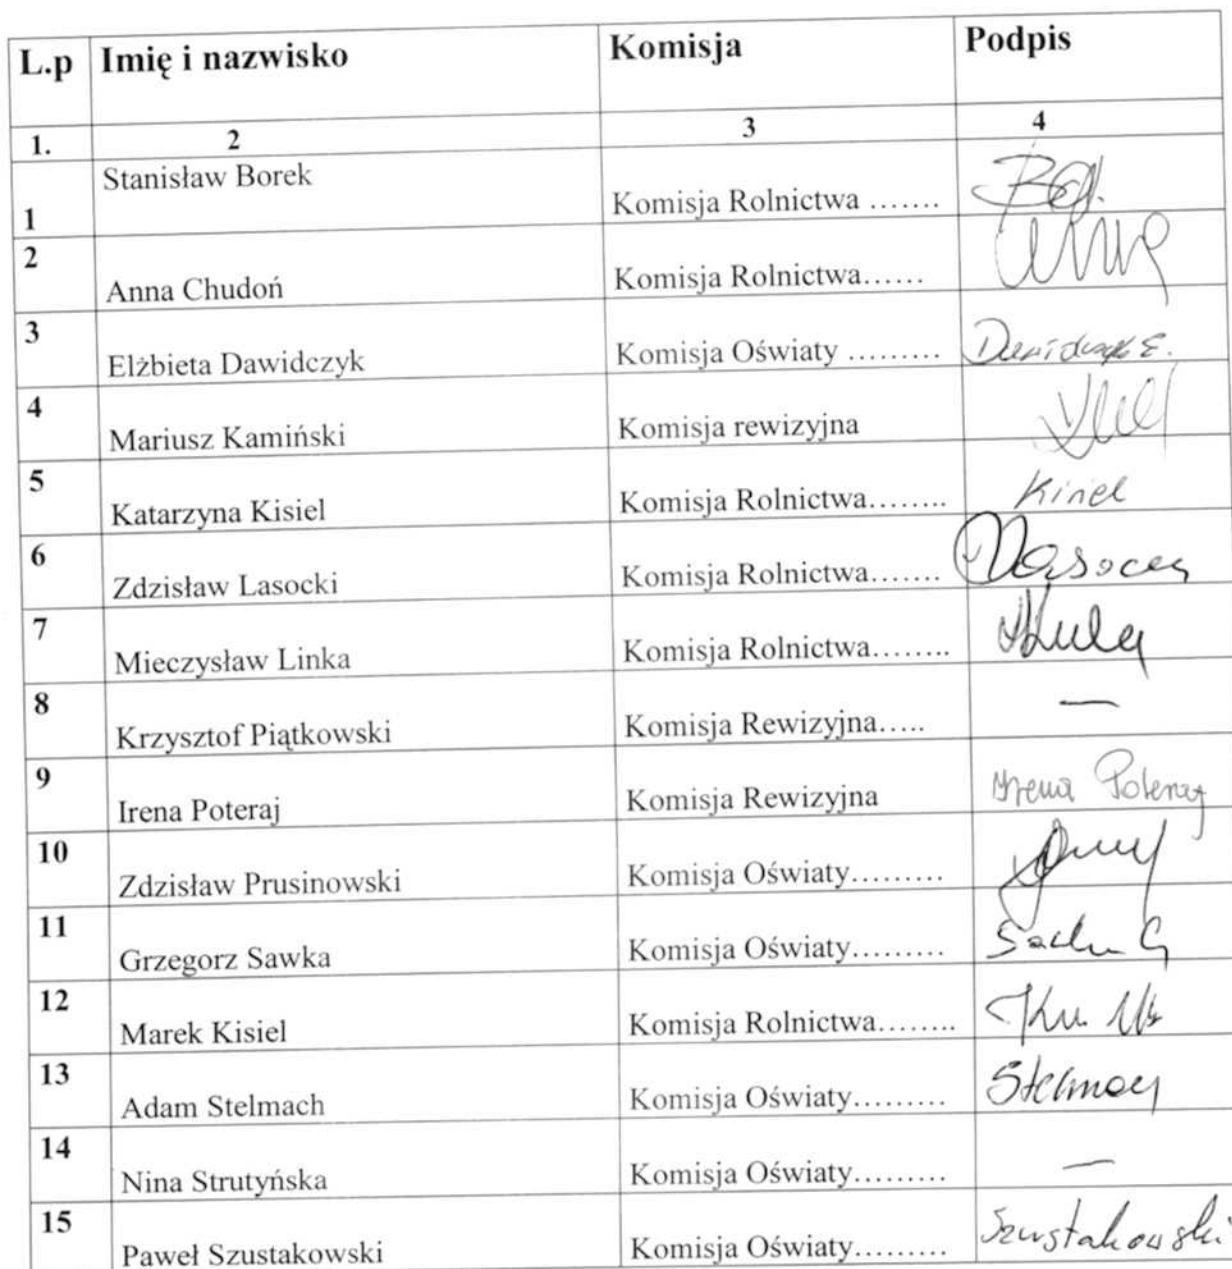 L.p Imię i nazwisko Komisja Podpis
1. 2 3 4
1 Stanisław Borek Komisja Rolnictwa .......
2 Anna Chudoń Komisja Rolnictwa......
3 Elżbieta Dawidczyk Komisja Oświaty ......... Dawidczyk E.
4 Mariusz Kamiński Komisja rewizyjna
5 Katarzyna Kisiel Komisja Rolnictwa........ Kisiel
6 Zdzisław Lasocki Komisja Rolnictwa.......
7 Mieczysław Linka Komisja Rolnictwa........
8 Krzysztof Piątkowski Komisja Rewizyjna..... —
9 Irena Poteraj Komisja Rewizyjna Irena Poteraj
10 Zdzisław Prusinowski Komisja Oświaty.........
11 Grzegorz Sawka Komisja Oświaty.........
12 Marek Kisiel Komisja Rolnictwa........
13 Adam Stelmach Komisja Oświaty......... Stelmach
14 Nina Strutyńska Komisja Oświaty......... —
15 Paweł Szustakowski Komisja Oświaty......... Szustakowski